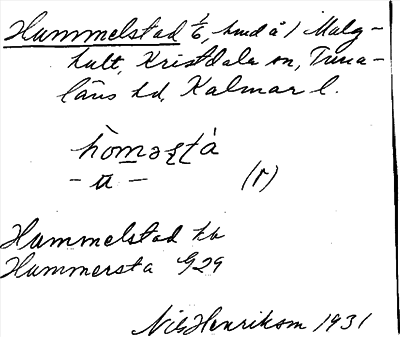 Hammelstad ⅟₆, hmd å 1 Malg-
hult, Kristdala sn, Tuna-
läns hd, Kalmar l.
hòməʂtá
- a - (r)
Hammelstad hb
Hammersta G 29
Nils Henrikson 1931